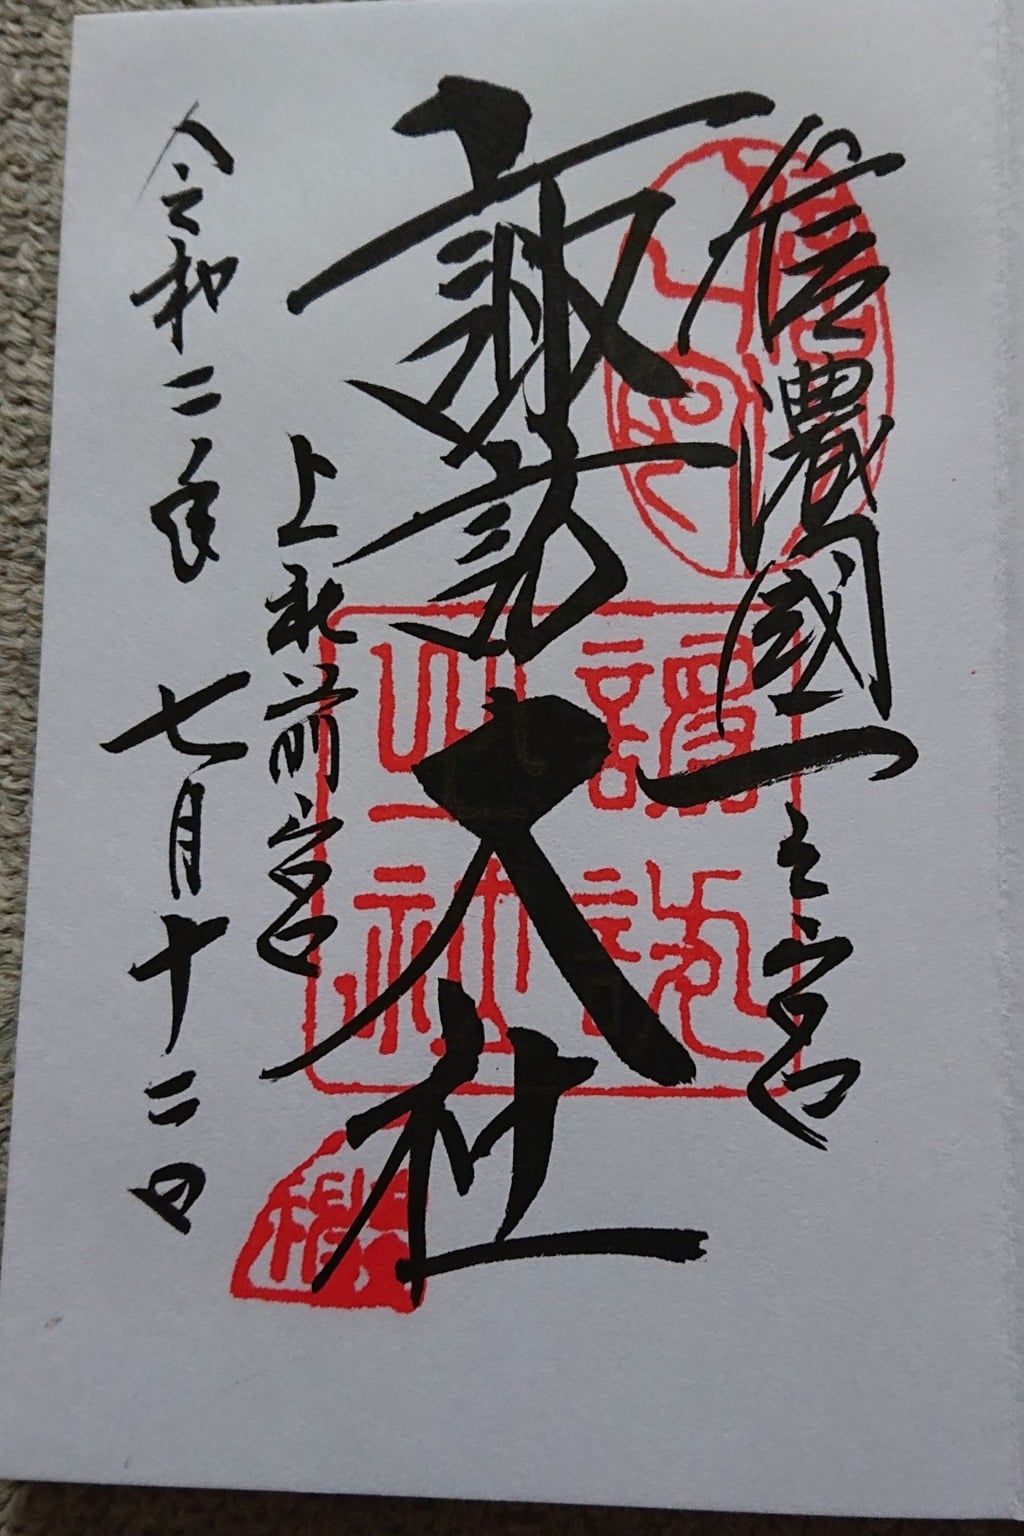 信濃國一之宮
諏訪大社
上社前宮
令和二年 七月十二日